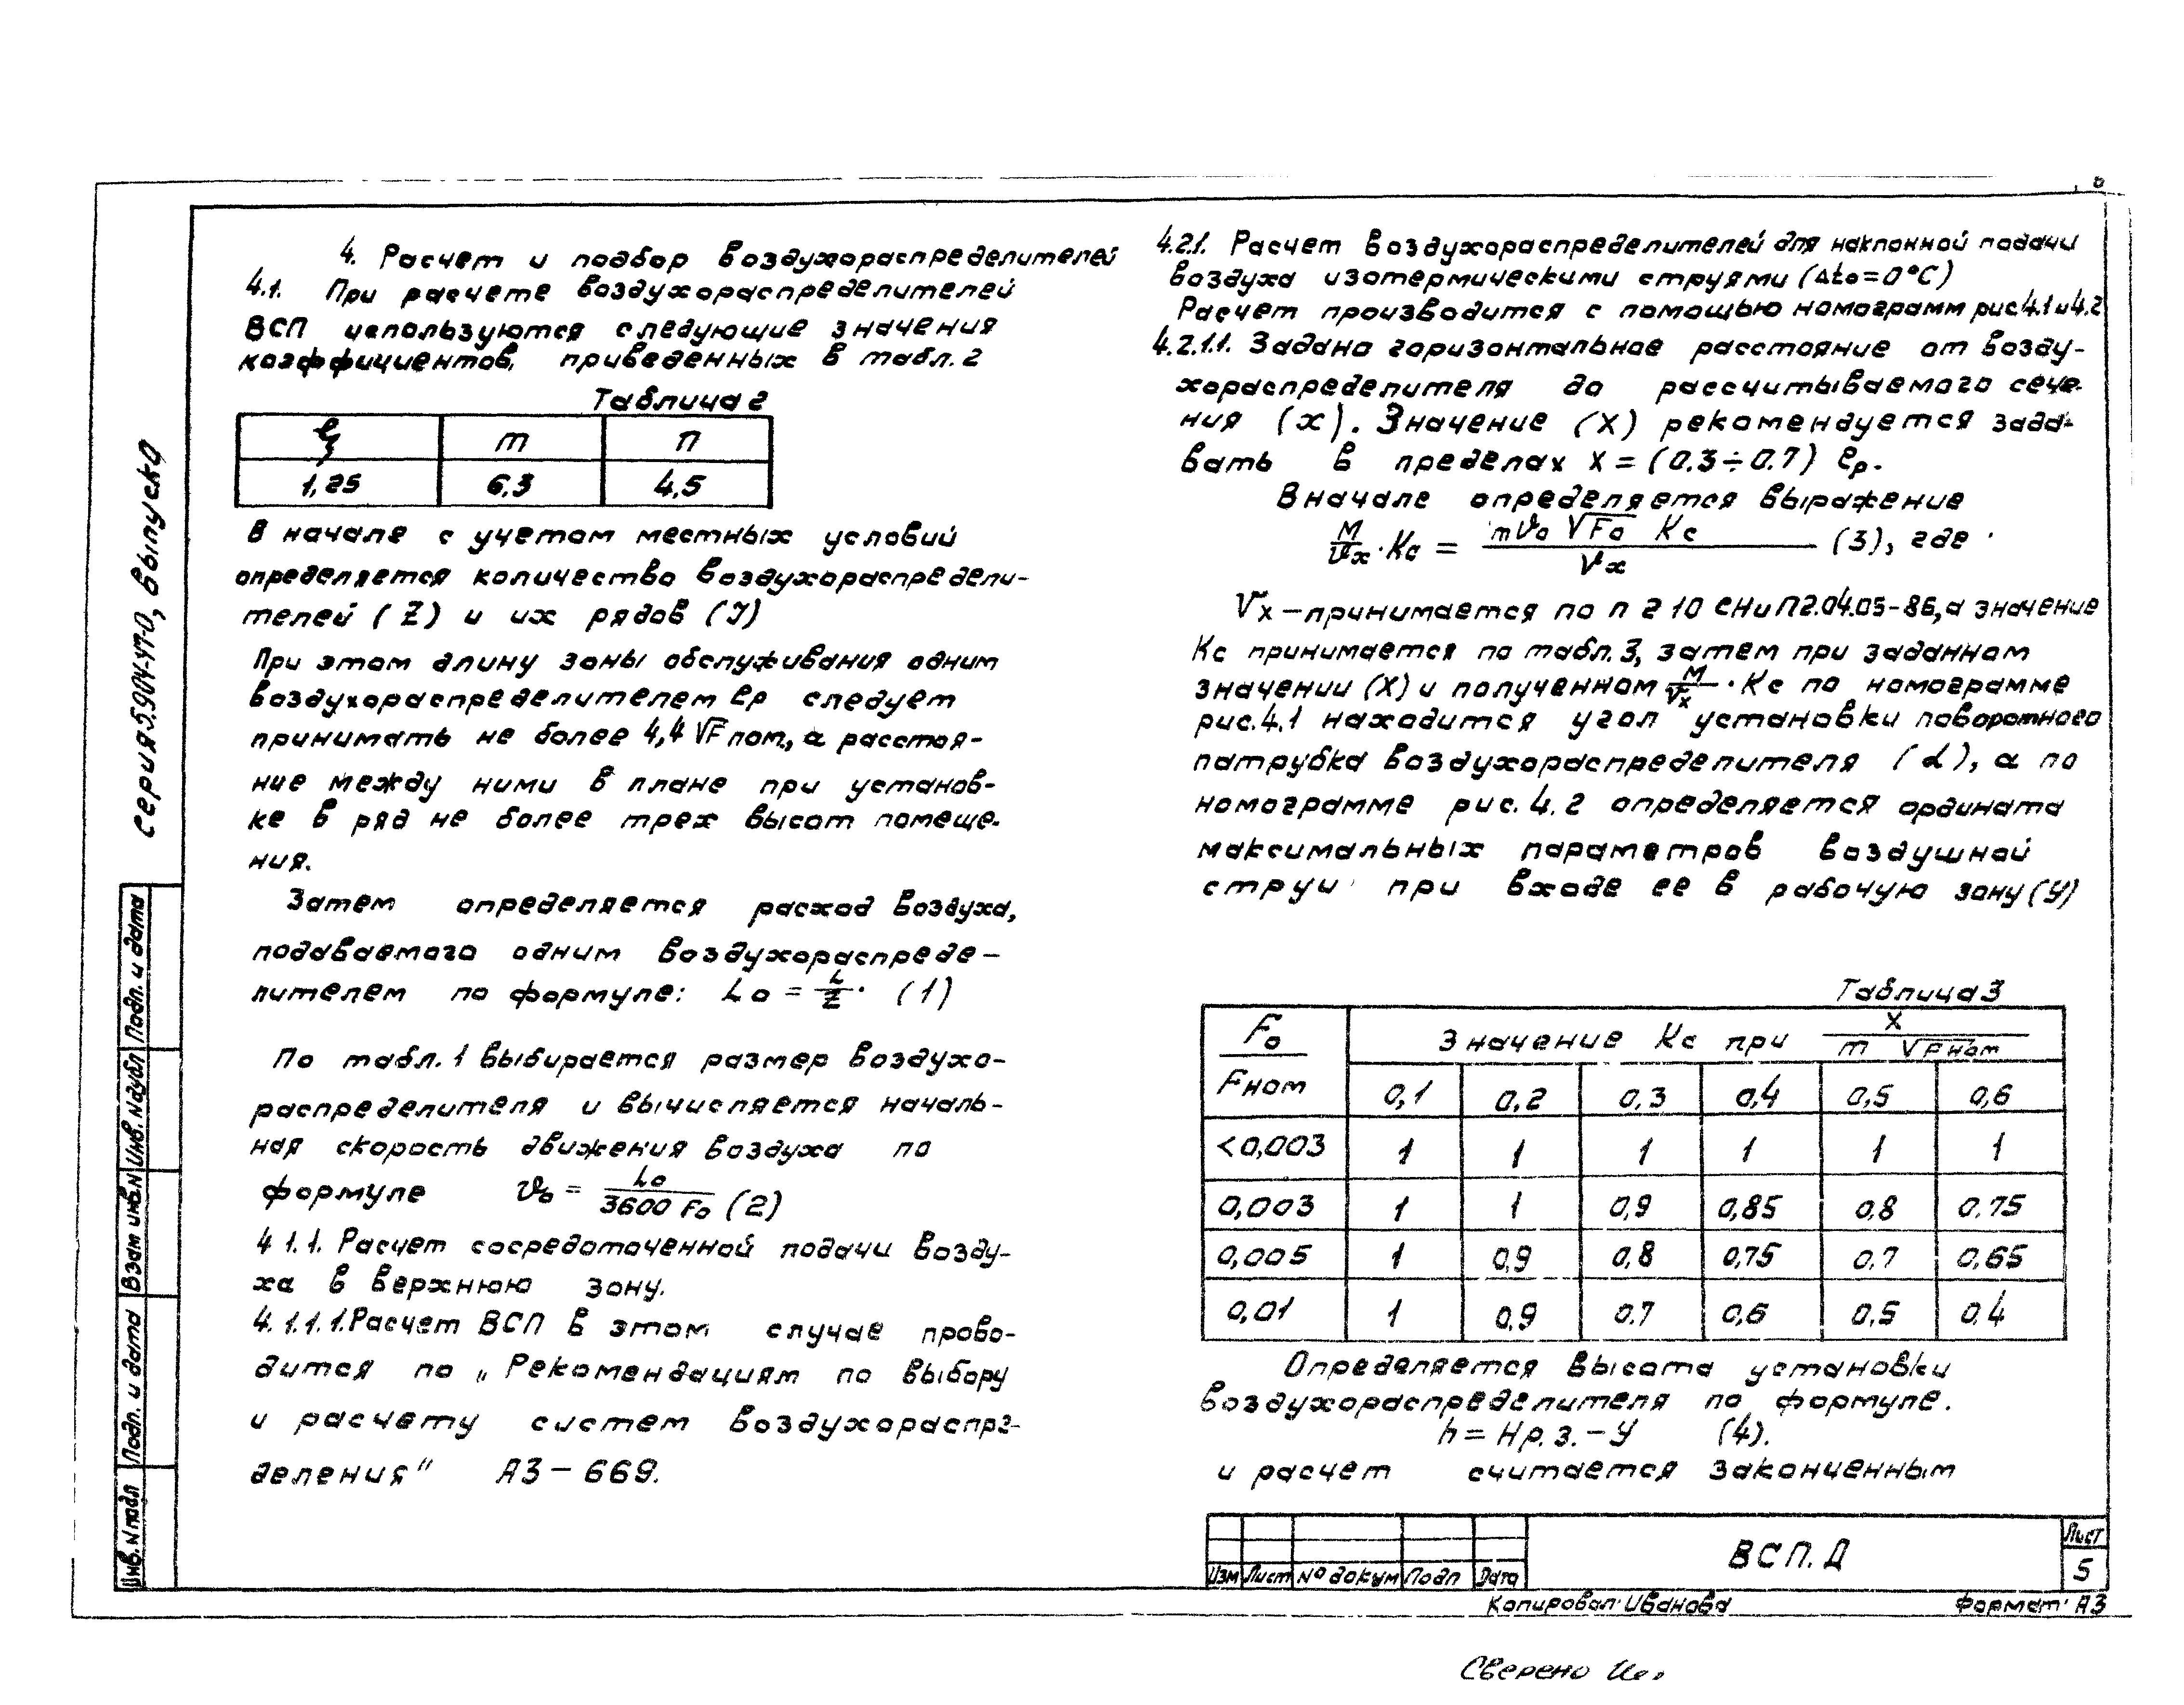 4. Расчет и подбор воздухораспределителей
4.1. При расчете воздухораспределителей
ВСП используются следующие значения
коэффициентов, приведенных в табл. 2
Таблица 2
ξ m п
1,25 6,3 4,5
В начале с учетом местных условий
определяется количество воздухораспредели-
телей (Z) и их рядов (У)
При этом длину зоны обслуживания одним
воздухораспределителем ℓр следует
принимать не более 4,4 √F пом., а расстоя-
ние между ними в плане при установ-
ке в ряд не более трех высот помеще-
ния.
Затем определяется расход воздуха,
подаваемого одним воздухораспреде-
лителем по формуле: Lo = L/Z · (1)
По табл. 1 выбирается размер воздухо-
распределителя и вычисляется началь-
ная скорость движения воздуха по
формуле υo = Lo / 3600 Fo (2)
4 1.1. Расчет сосредоточенной подачи возду-
ха в верхнюю зону.
4.1.1.1. Расчет ВСП в этом случае прово-
дится по „Рекомендациям по выбору
и расчету систем воздухораспре-
деления" А3-669.
4.2.1. Расчет воздухораспределителей для наклонной подачи
воздуха изотермическими струями (Δto=0°C)
Расчет производится с помощью номограмм рис.4.1 и 4.2
4.2.1.1. Задано горизонтальное расстояние от возду-
хораспределителя до рассчитываемого сече-
ния (х). Значение (X) рекомендуется зада-
вать в пределах X = (0.3÷0.7) ℓр.
Вначале определяется выражение
М/υx · Кс = mυo √Fo Кс / Vx (3), где
Vx – принимается по п 2 10 СНиП2.04.05-86, а значение
Кс принимается по табл. 3, затем при заданном
значении (X) и полученном М/Vx · Кс по номограмме
рис. 4.1 находится угол установки поворотного
патрубка воздухораспределителя (α), а по
номограмме рис. 4.2 определяется ордината
максимальных параметров воздушной
струи при входе ее в рабочую зону (У)
Таблица 3
Fo / Fном Значение Кс при X / m √Fном
0,1 0,2 0,3 0,4 0,5 0,6
<0,003 1 1 1 1 1 1
0,003 1 1 0,9 0,85 0,8 0.75
0,005 1 0,9 0,8 0,75 0.7 0,65
0,01 1 0,9 0.7 0,6 0,5 0,4
Определяется высота установки
воздухораспределителя по формуле.
h = Hр.з. – У (4).
и расчет считается законченным
Изм Лист № докум Подп Дата
ВСП.Д
Лист
5
Копировал: Иванова Формат: А3
Сверено
Серия 5.904-
, выпуск 0
Подп. и дата
Инв. N дубл
Взам инв. N
Подп. и дата
Инв. N подл